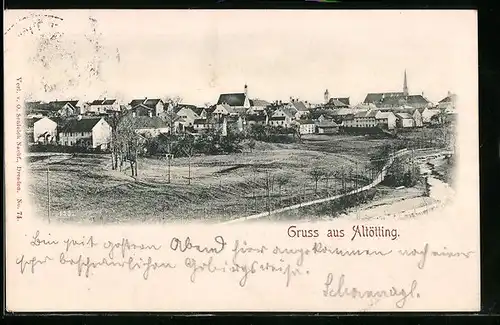 Verl. v. O. Schleich Nachf., Dresden. No. 74.
Gruss aus Altötting.
Bin seit gestern Abend hier angekommen nach einer
sehr beschwerlichen Gebirgsreise.